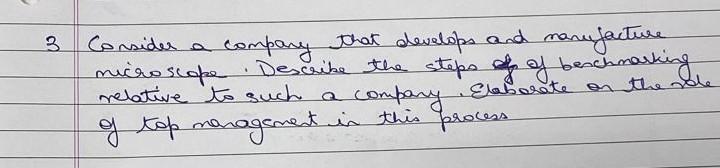 3 Consider a company that develops and manufacture
microscope. Describe the steps of of benchmarking
relative to such a company. Elaborate on the role
of top management in this process